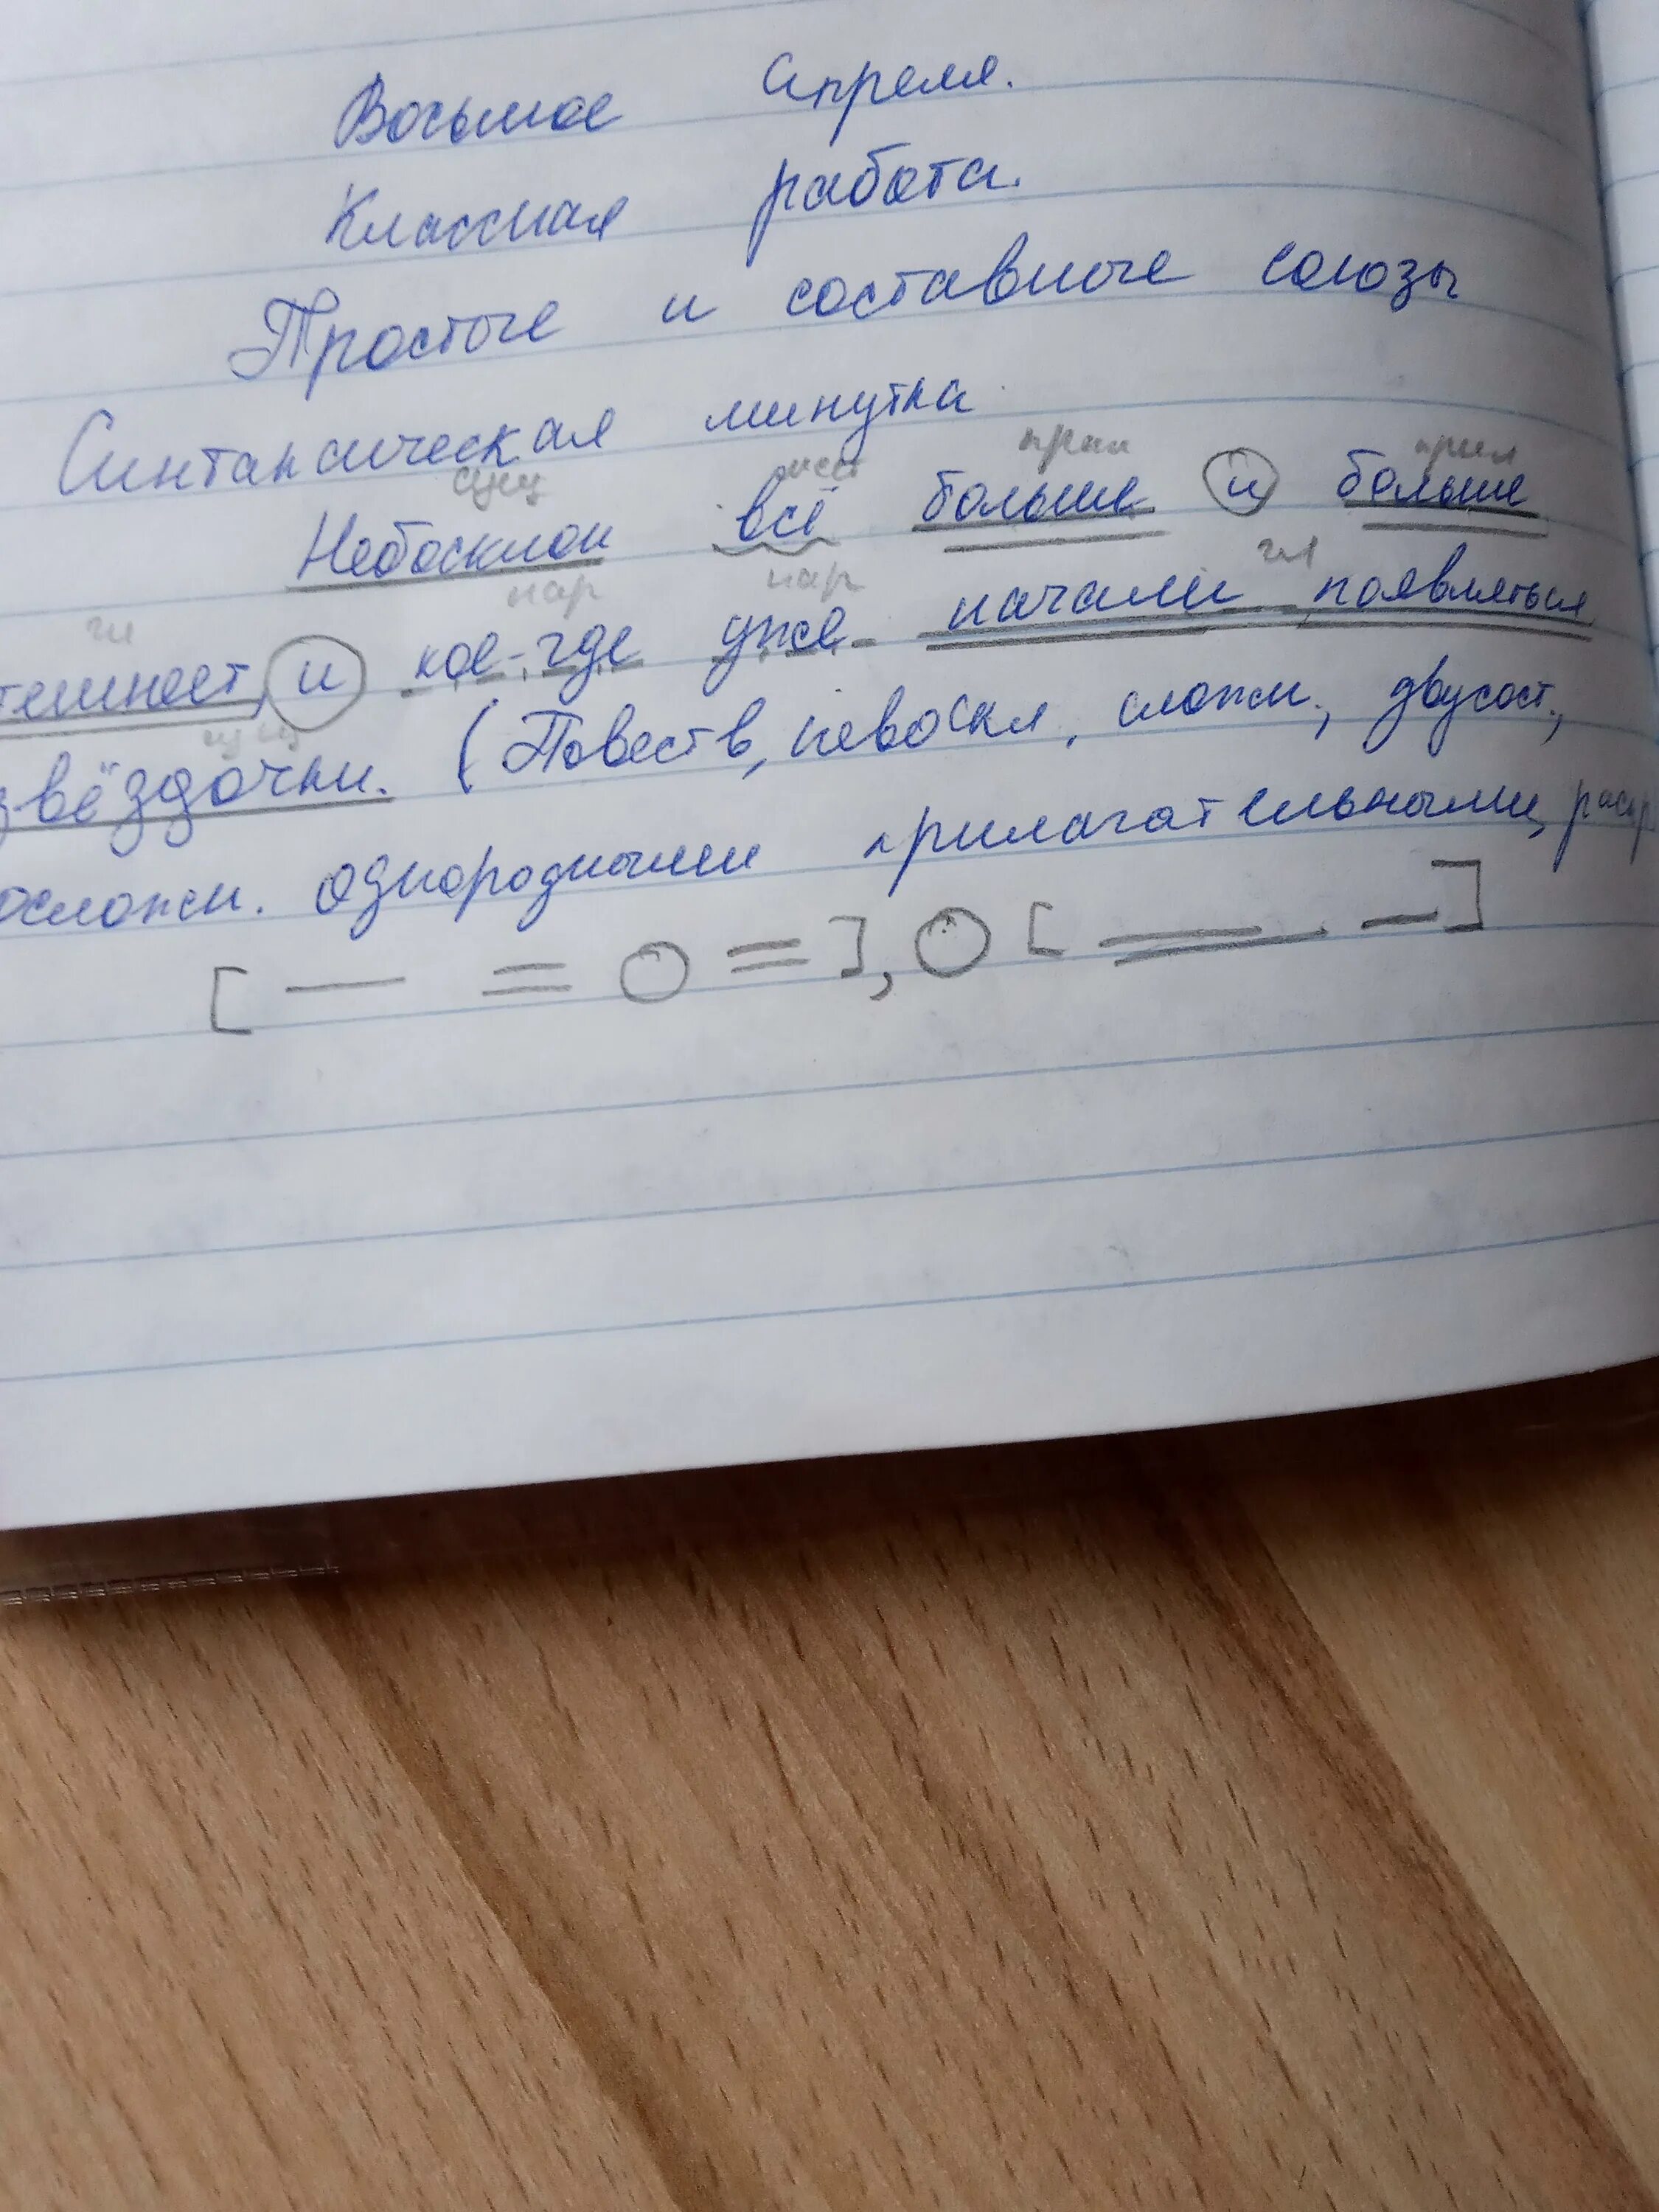 Восьмое апреля.
Классная работа.
Простые и составные союзы
Синтаксическая минутка
сущ мест прил прил
Небосклон всё больше и больше
гл нар нар гл
темнеет, и кое-где уже начали появляться
сущ
звёздочки. (Повеств, невоскл, сложн., двусост.,
осложн. однородными прилагательными, распр
[ — = О = ], О [ = — ]